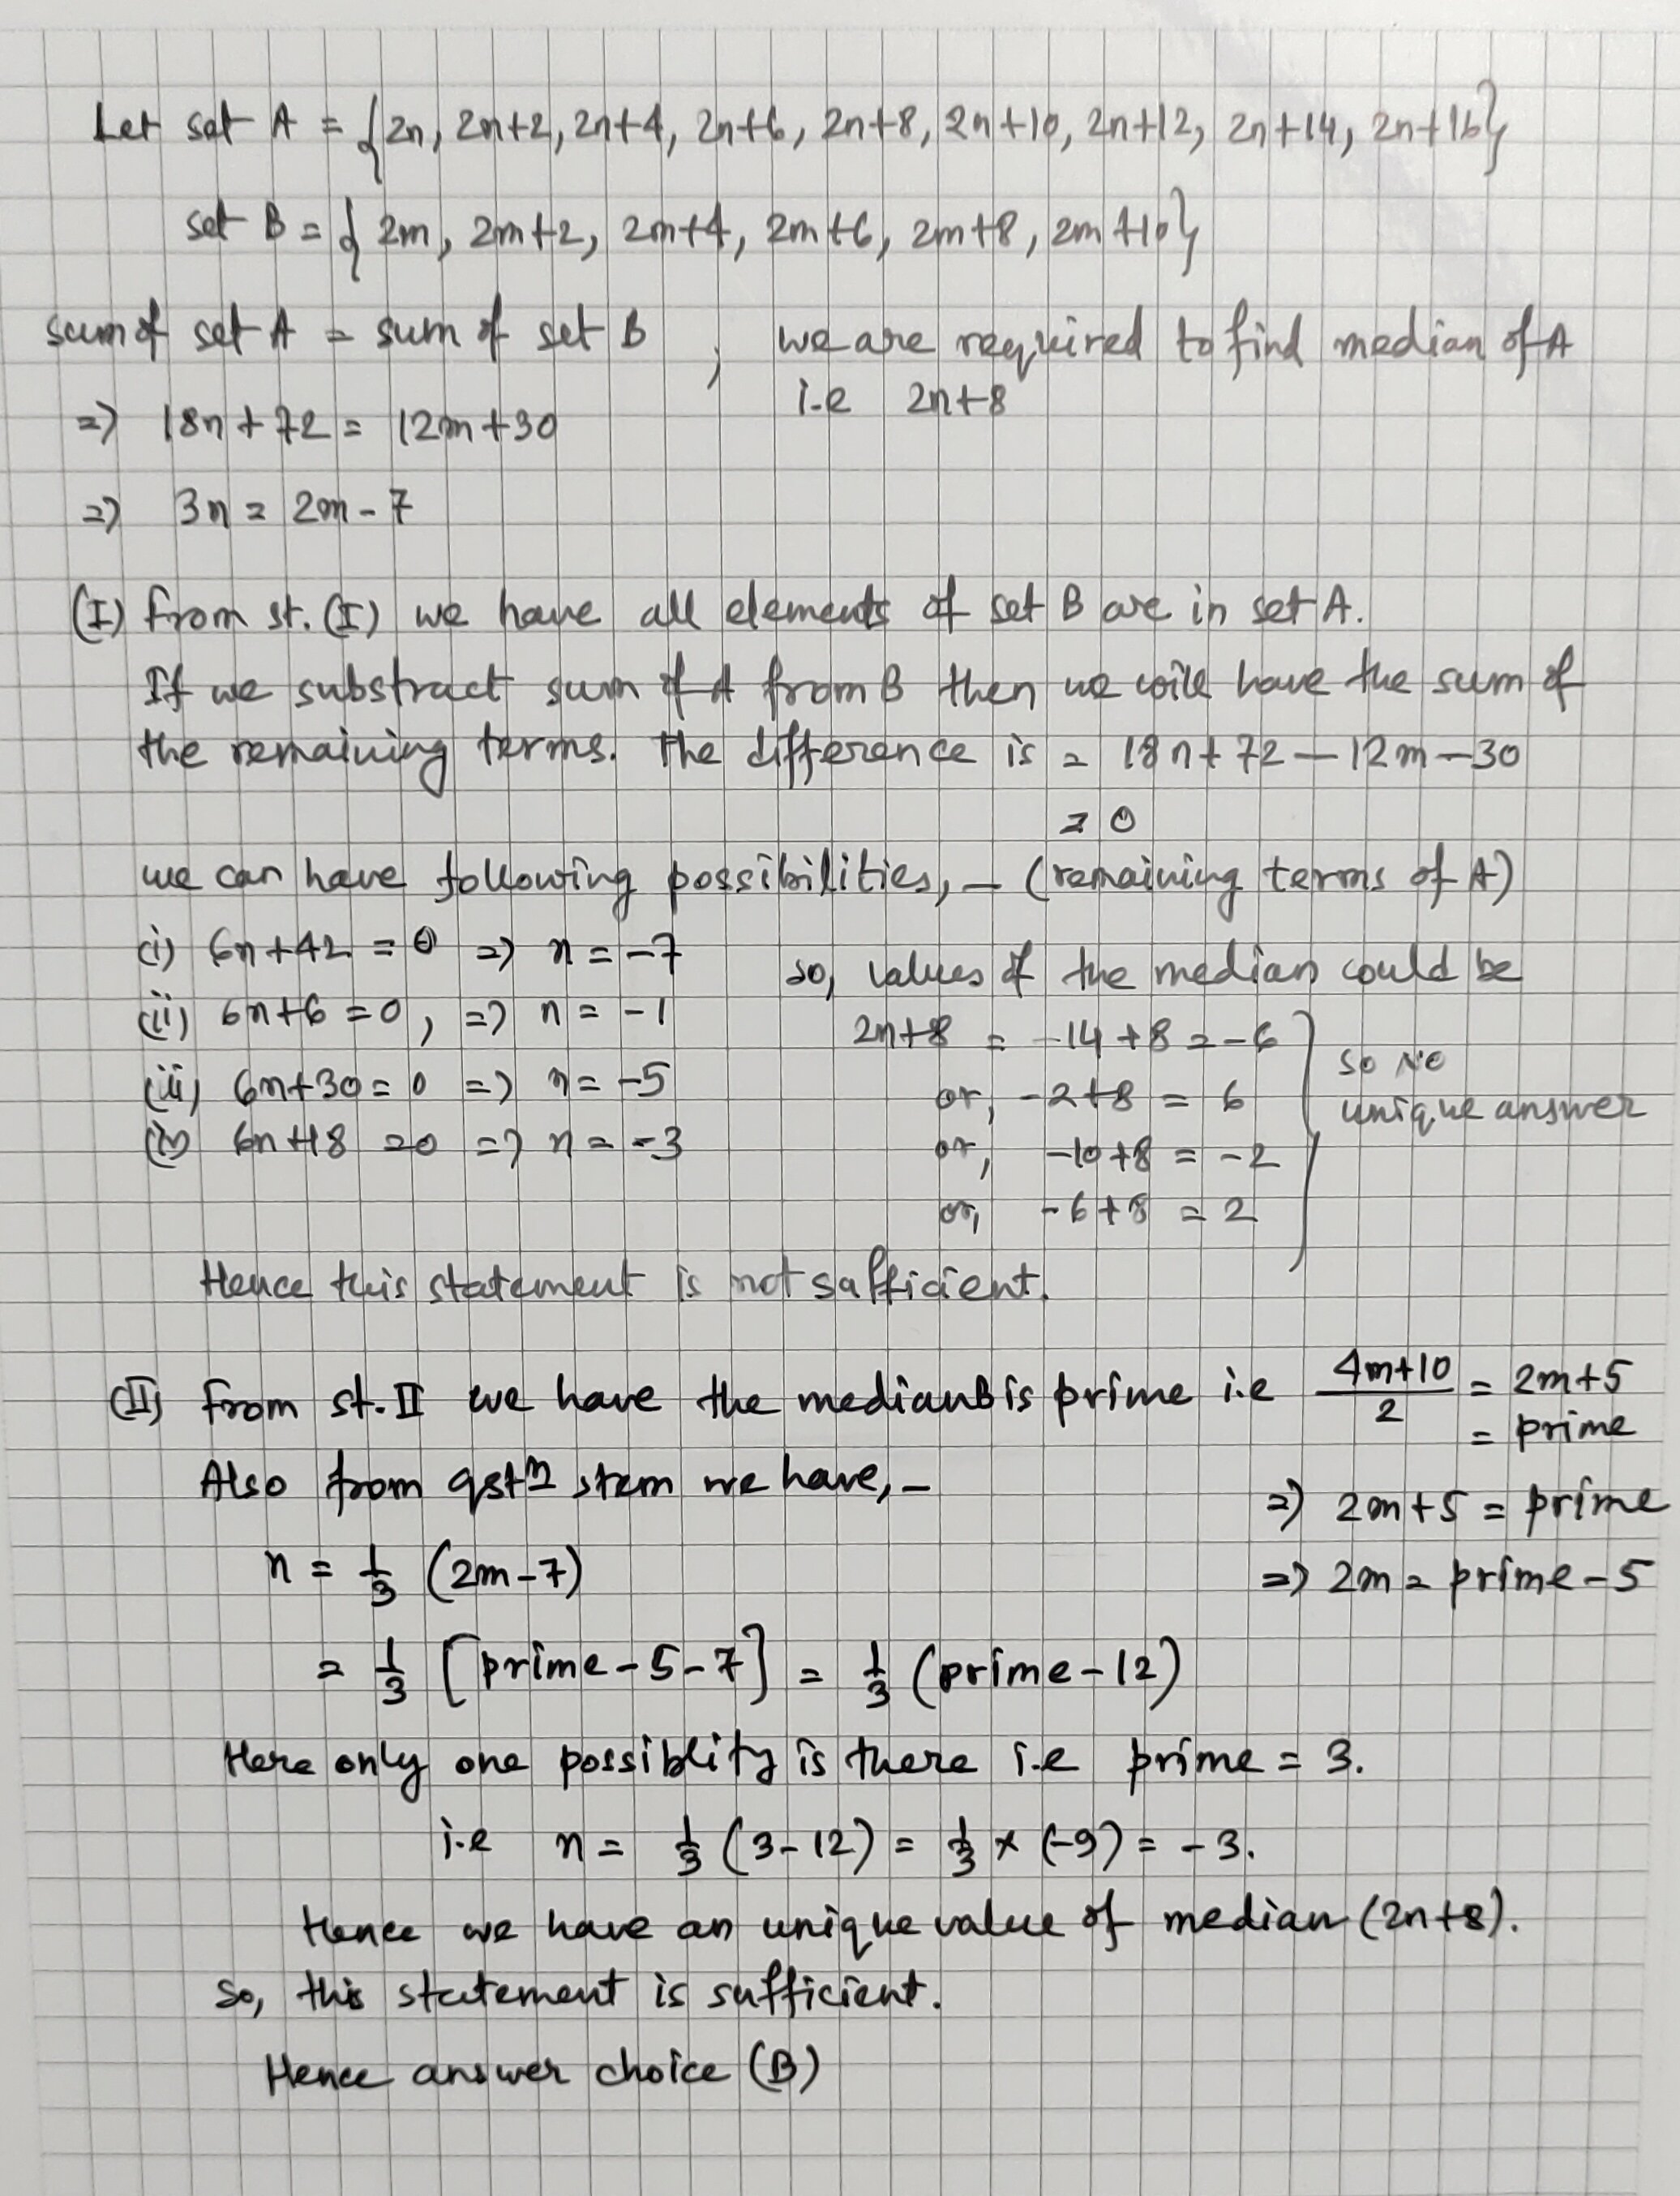 Let set A = {2n, 2n+2, 2n+4, 2n+6, 2n+8, 2n+10, 2n+12, 2n+14, 2n+16}
set B = {2m, 2m+2, 2m+4, 2m+6, 2m+8, 2m+10}
sum of set A = sum of set B ; we are required to find median of A
i.e 2n+8
=> 18n+72 = 12m+30
=> 3n = 2m-7
(I) from st. (I) we have all elements of set B are in set A.
If we substract sum of A from B then we will have the sum of
the remaining terms. The difference is = 18n+72-12m-30
= 0
we can have following possibilities, - (remaining terms of A)
(i) 6n+42 = 0 => n = -7
so, values of the median could be
(ii) 6n+6 = 0, => n = -1
2n+8 = -14+8 = -6
(iii) 6n+30 = 0 => n = -5
or, -2+8 = 6
so No
unique answer
(iv) 6n+18 = 0 => n = -3
or, -10+8 = -2
or, -6+8 = 2
Hence this statement is not safficient.
(II) From st. II we have the median B is prime i.e (4m+10)/2 = 2m+5
= prime
Also from qstn stem we have, -
=> 2m+5 = prime
n = 1/3 (2m-7)
=> 2m = prime-5
= 1/3 [prime-5-7] = 1/3 (prime-12)
Here only one possiblity is there i.e prime = 3.
i.e n = 1/3 (3-12) = 1/3 x (-9) = -3.
Hence we have an unique value of median (2n+8).
so, this statement is sufficient.
Hence answer choice (B)